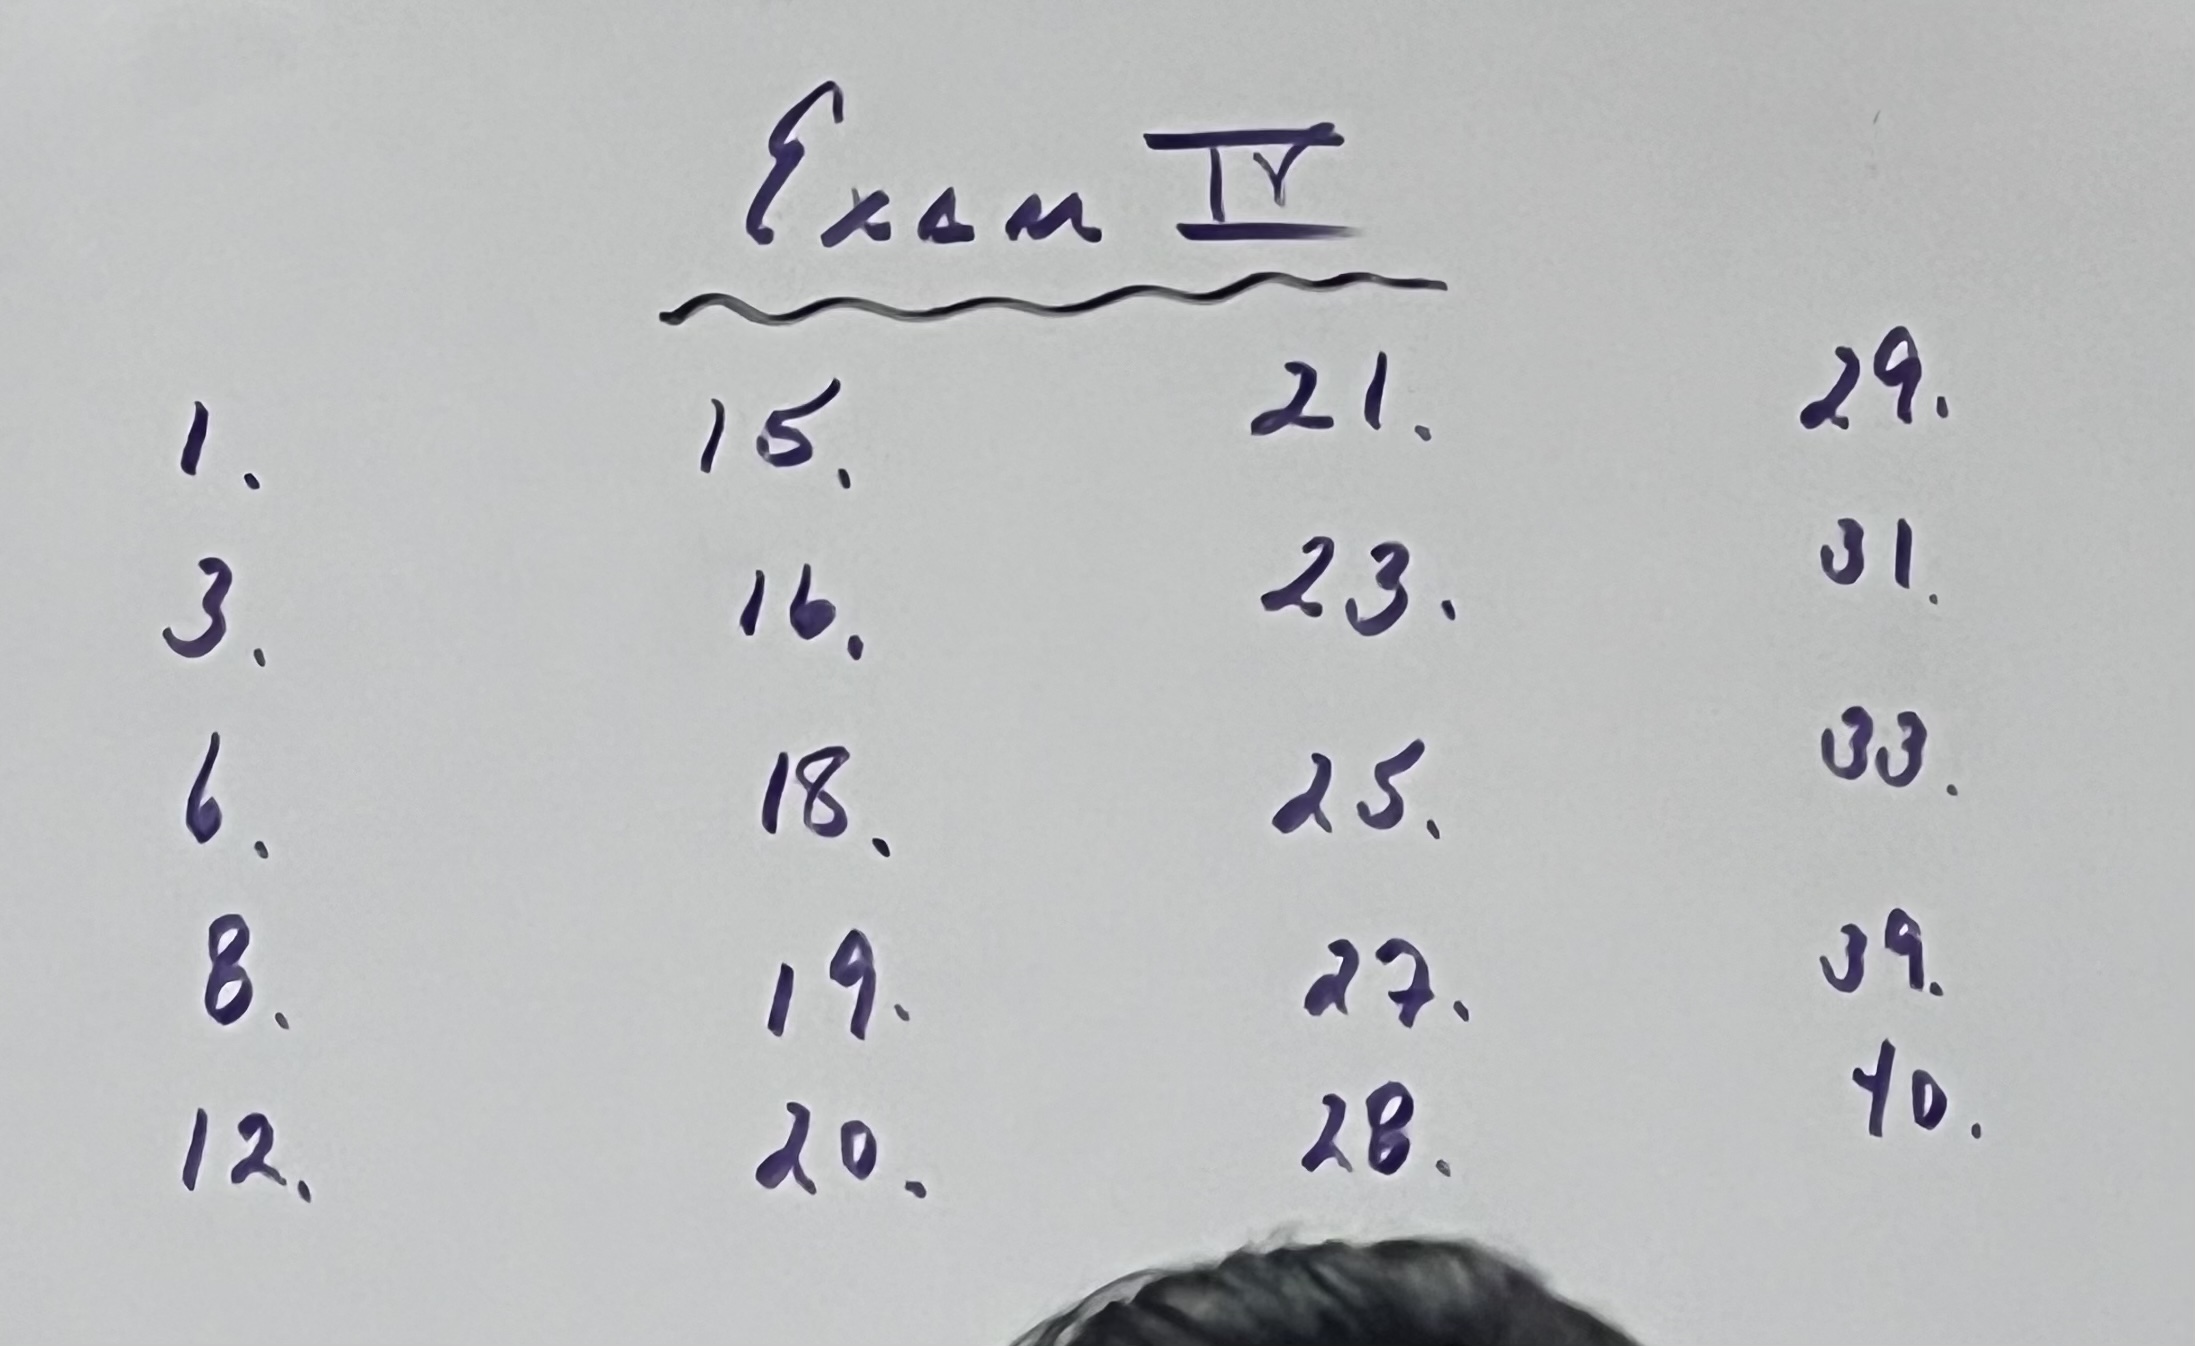 Exam IV
1. 15. 21. 29.
3. 16. 23. 31.
6. 18. 25. 33.
8. 19. 27. 39.
12. 20. 28. 40.